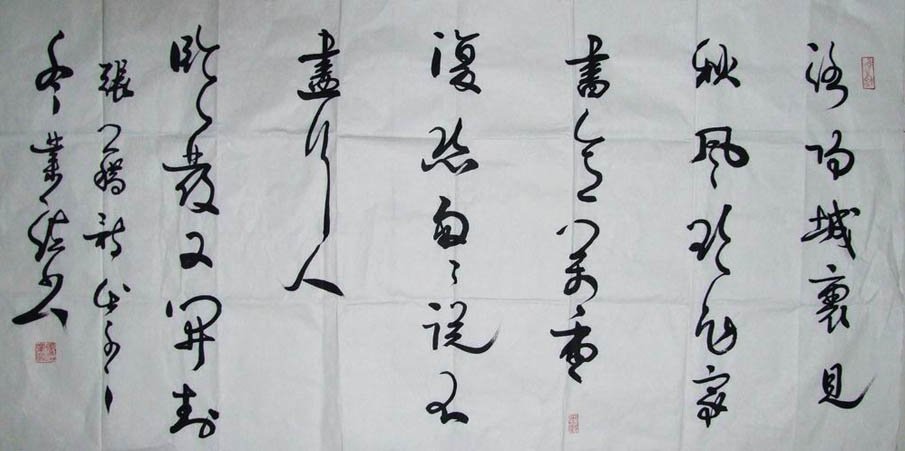 洛陽城裏見
秋風欲作家
書意萬重
復恐匆々說不
盡行人
臨發又開封
張籍詩戊子
冬業德書